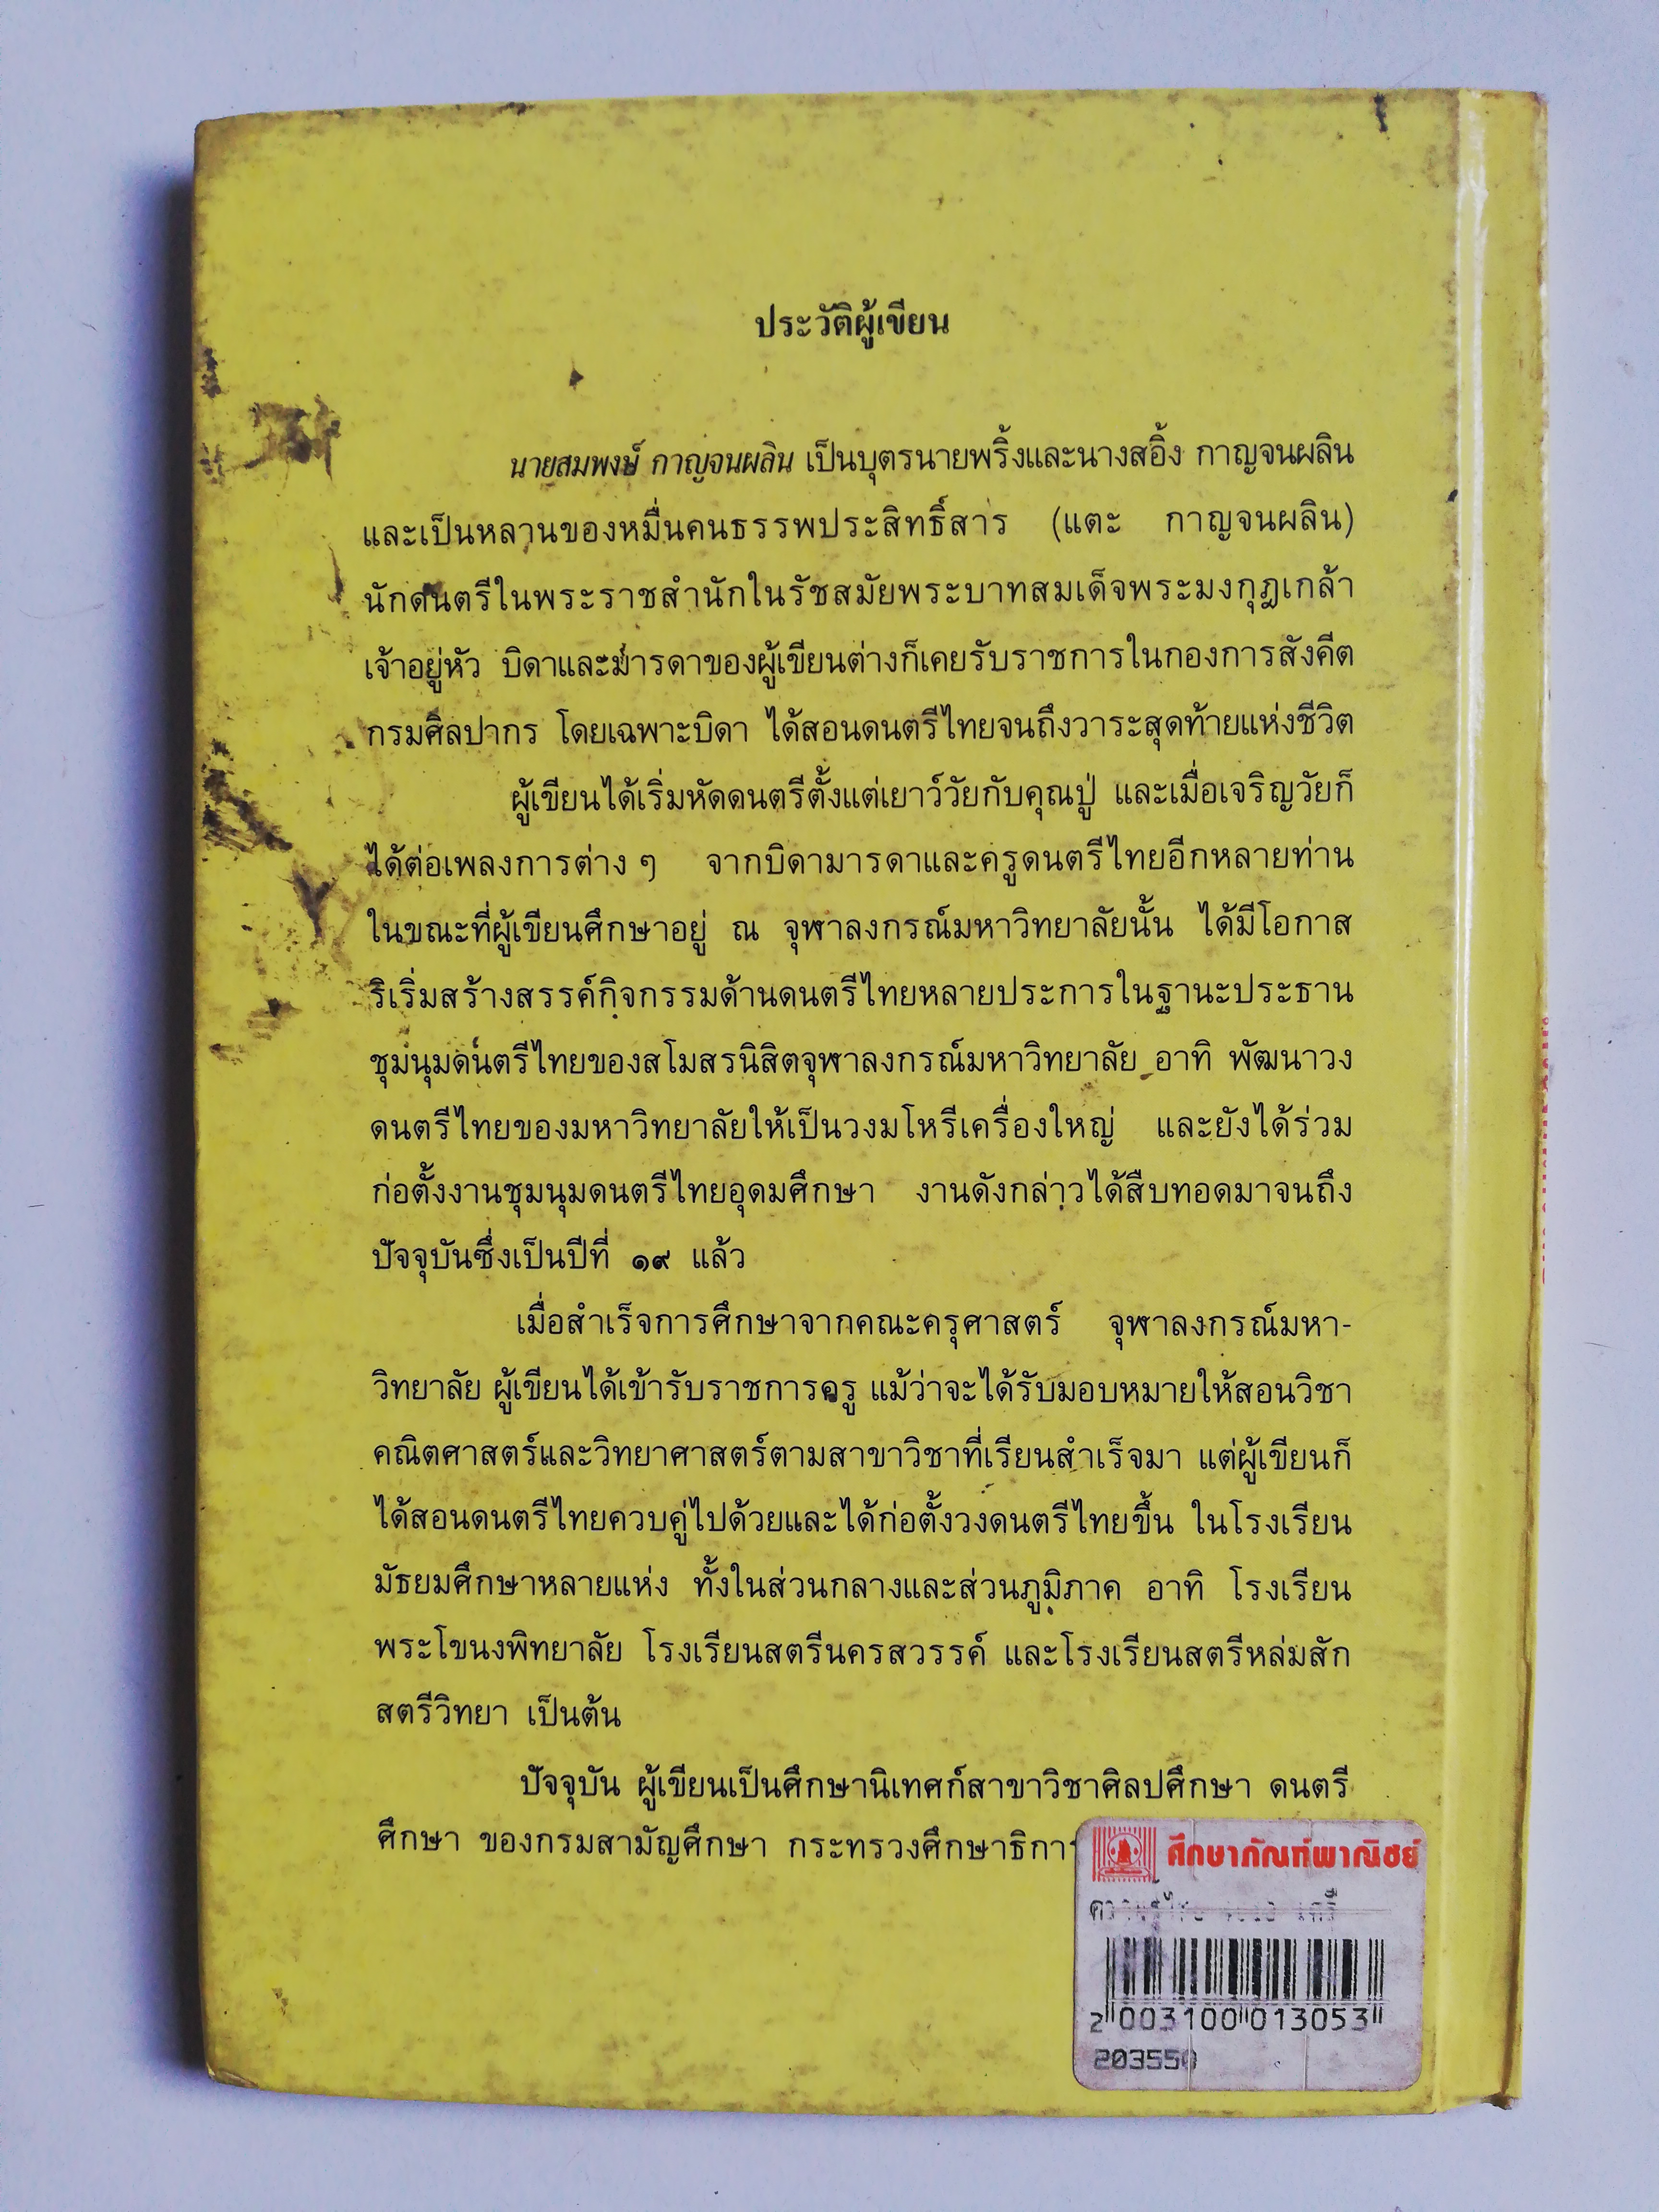 ประวัติผู้เขียน
นายสมพงษ์ กาญจนผลิน เป็นบุตรนายพริ้งและนางสอิ้ง กาญจนผลิน
และเป็นหลานของหมื่นคนธรรพประสิทธิ์สาร (แตะ กาญจนผลิน)
นักดนตรีในพระราชสำนักในรัชสมัยพระบาทสมเด็จพระมงกุฎเกล้า
เจ้าอยู่หัว บิดาและมารดาของผู้เขียนต่างก็เคยรับราชการในกองการสังคีต
กรมศิลปากร โดยเฉพาะบิดา ได้สอนดนตรีไทยจนถึงวาระสุดท้ายแห่งชีวิต
ผู้เขียนได้เริ่มหัดดนตรีตั้งแต่เยาว์วัยกับคุณปู่ และเมื่อเจริญวัยก็
ได้ต่อเพลงการต่าง ๆ จากบิดามารดาและครูดนตรีไทยอีกหลายท่าน
ในขณะที่ผู้เขียนศึกษาอยู่ ณ จุฬาลงกรณ์มหาวิทยาลัยนั้น ได้มีโอกาส
ริเริ่มสร้างสรรค์กิจกรรมด้านดนตรีไทยหลายประการในฐานะประธาน
ชุมนุมดนตรีไทยของสโมสรนิสิตจุฬาลงกรณ์มหาวิทยาลัย อาทิ พัฒนาวง
ดนตรีไทยของมหาวิทยาลัยให้เป็นวงมโหรีเครื่องใหญ่ และยังได้ร่วม
ก่อตั้งงานชุมนุมดนตรีไทยอุดมศึกษา งานดังกล่าวได้สืบทอดมาจนถึง
ปัจจุบันซึ่งเป็นปีที่ ๑๙ แล้ว
เมื่อสำเร็จการศึกษาจากคณะครุศาสตร์ จุฬาลงกรณ์มหา-
วิทยาลัย ผู้เขียนได้เข้ารับราชการครู แม้ว่าจะได้รับมอบหมายให้สอนวิชา
คณิตศาสตร์และวิทยาศาสตร์ตามสาขาวิชาที่เรียนสำเร็จมา แต่ผู้เขียนก็
ได้สอนดนตรีไทยควบคู่ไปด้วยและได้ก่อตั้งวงดนตรีไทยขึ้น ในโรงเรียน
มัธยมศึกษาหลายแห่ง ทั้งในส่วนกลางและส่วนภูมิภาค อาทิ โรงเรียน
พระโขนงพิทยาลัย โรงเรียนสตรีนครสวรรค์ และโรงเรียนสตรีหล่มสัก
สตรีวิทยา เป็นต้น
ปัจจุบัน ผู้เขียนเป็นศึกษานิเทศก์สาขาวิชาศิลปศึกษา ดนตรี
ศึกษา ของกรมสามัญศึกษา กระทรวงศึกษาธิการ
ศึกษาภัณฑ์พาณิชย์
2 003100 013053
203550